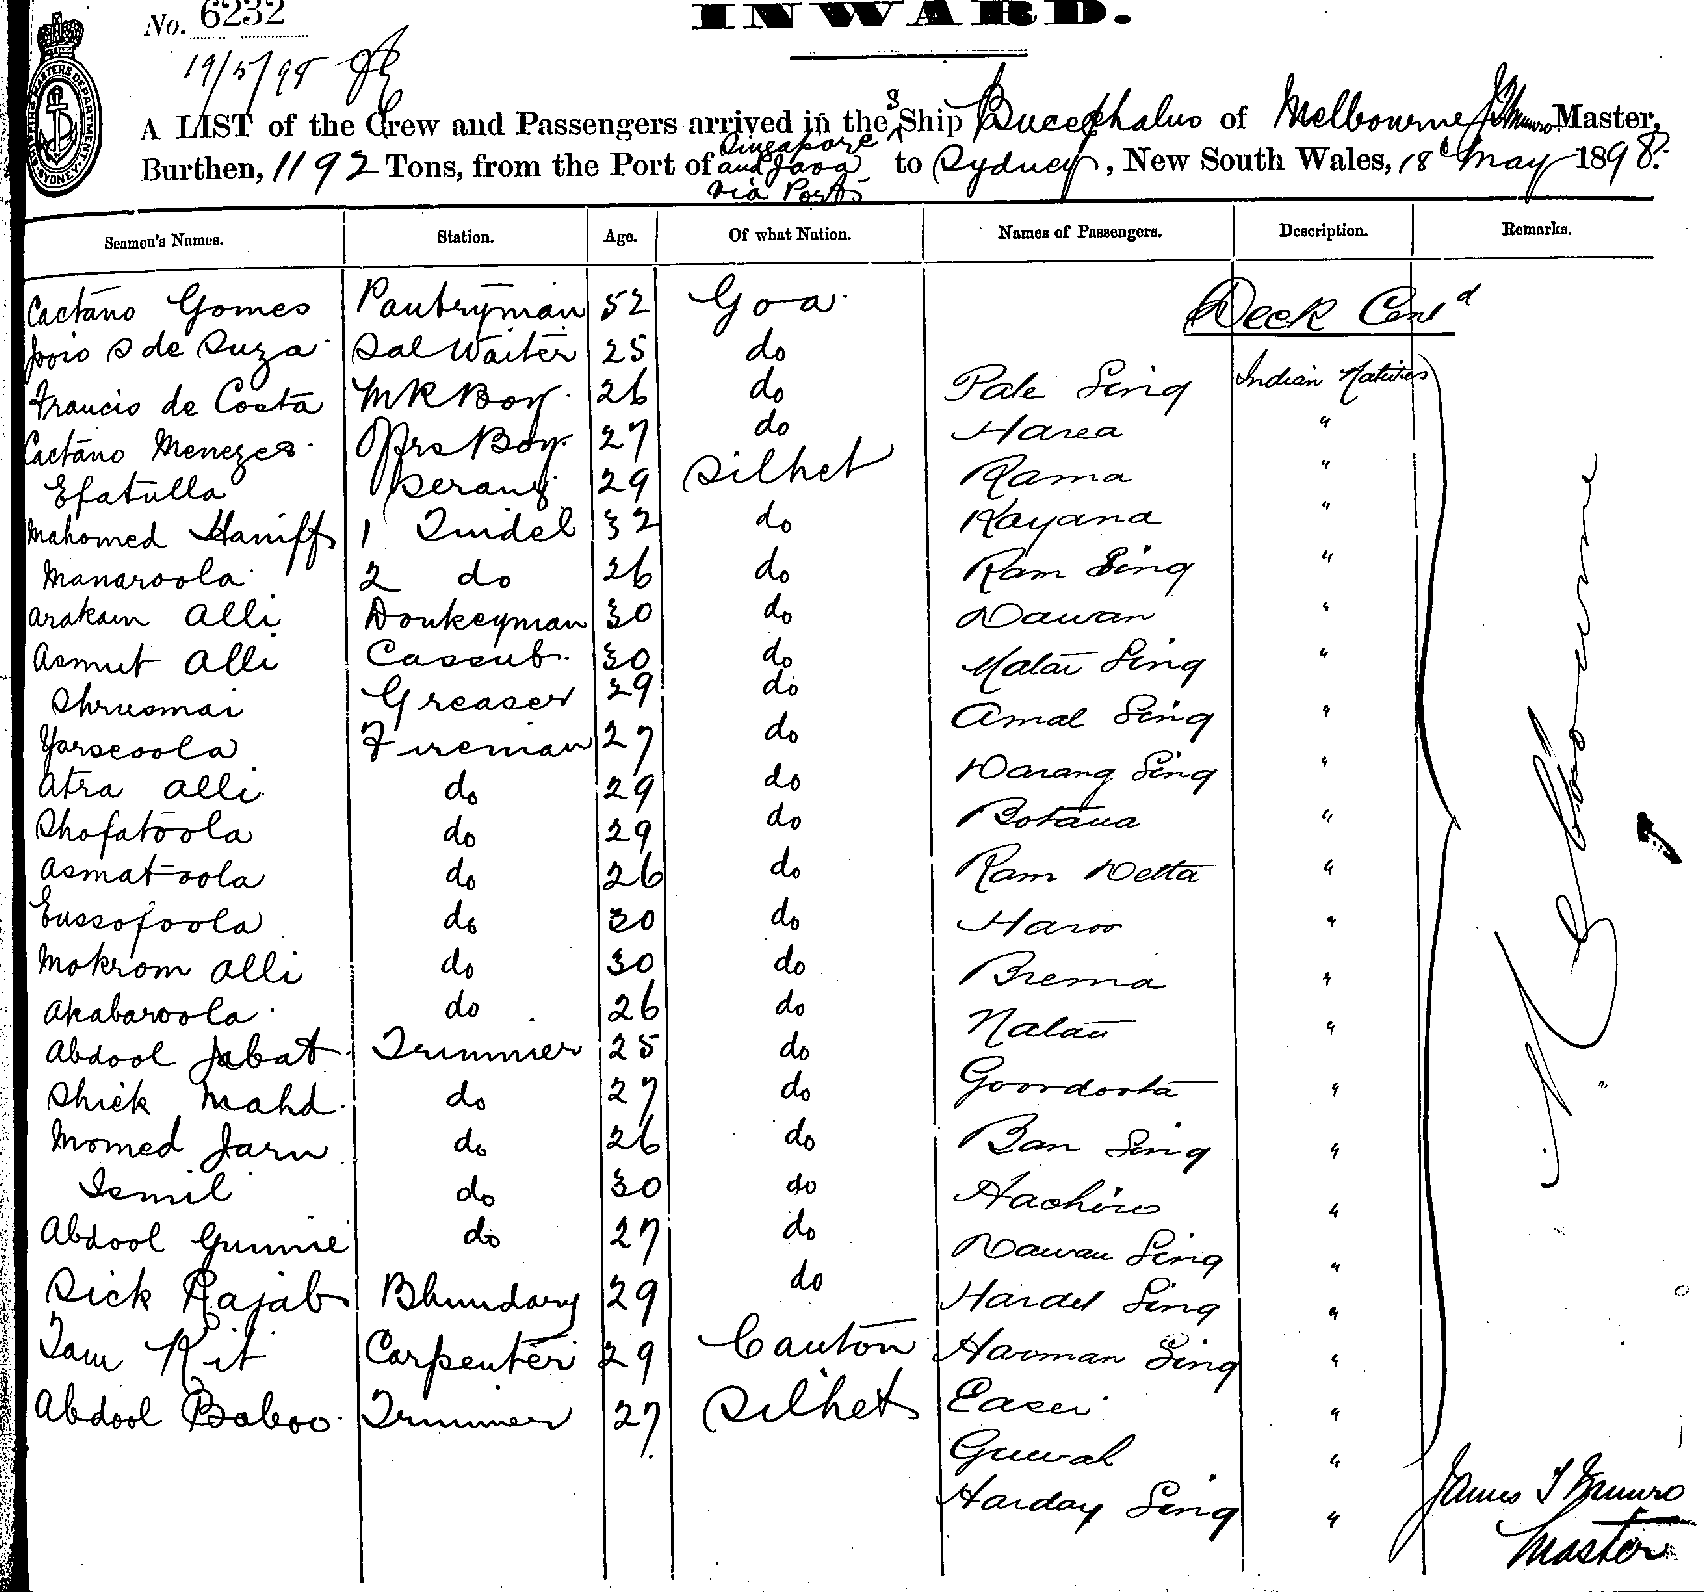 No. 6232
INWARD.
19/5/98
A LIST of the Crew and Passengers arrived in the S Ship Bucephalus of Melbourne J T Munro Master,
Burthen, 1192 Tons, from the Port of Singapore and Java via Ports to Sydney, New South Wales, 18th May 1898.
Seamen's Names. Station. Age. Of what Nation. Names of Passengers. Description. Remarks.
Deck Contd
Caetano Gomes Pantryman 52 Goa
Joao S de Suza Sal Waiter 25 do
Francis de Costa M R Boy 26 do Pale Sing Indian Natives
Caetano Menezes Offrs Boy 27 do Harea "
Efatulla Serang 29 Silhet Rama "
Mahomed Haniff 1 Tindel 32 do Kayana "
Manaroola 2 do 26 do Ram Sing "
Arakam Alli Donkeyman 30 do Nawan "
Asmut Alli Cassub 30 do Malai Sing "
Shrusmai Greaser 29 do Amal Sing "
Yarseoola Fireman 27 do Narang Sing "
Atra Alli do 29 do Botana "
Shofatoola do 29 do Ram Detta "
Asmat-oola do 26 do Haroo "
Eussofoola do 30 do Brema "
Mokrom Alli do 30 do Natau "
Akabaroola do 26 do Goordosta "
Abdool Jabat Trimmer 25 do Ban Sing "
Shiek Mahd do 27 do
Momed Jarn do 26 do Nawan Sing "
Ismil do 30 do Hardel Sing "
Abdool Gunnie do 27 do Harman Sing "
Sick Rajab Bhundary 29 do Easer "
Tam Kit Carpenter 29 Canton
Abdool Baboo Trimmer 27 Silhet Harday Sing "
James T Munro
Master